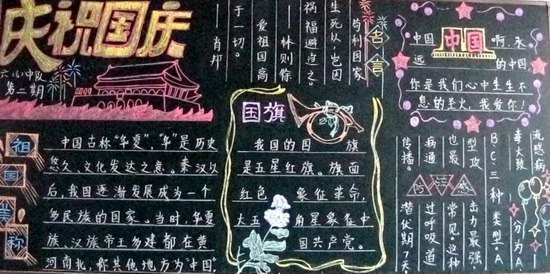 庆祝国庆
六(6)中队
第二期
名言
苟利国家
生死以,岂因
祸福避趋之。
——林则徐
爱祖国高
于一切。
——肖邦
中国 中国 啊,永
远 的中国
你是我们心中生生不
息的圣火,我爱你!
祖国美称
中国古称"华夏","华"是历史
悠久、文化发达之意。秦汉以
后,我国逐渐发展成为一个
多民族的国家。当时,华夏
族、汉族帝王多建都在黄
河南北,称其他地方为"中国",
国旗
我国的国 旗
是五星红旗。旗面
红色 象征革命,
大五 角星象征中
国共产党。
流感病
毒大致
可分为A
BC三种类型。A
型攻击力最强
也最常见,这种
病通过呼吸道
传播。潜伏期1天